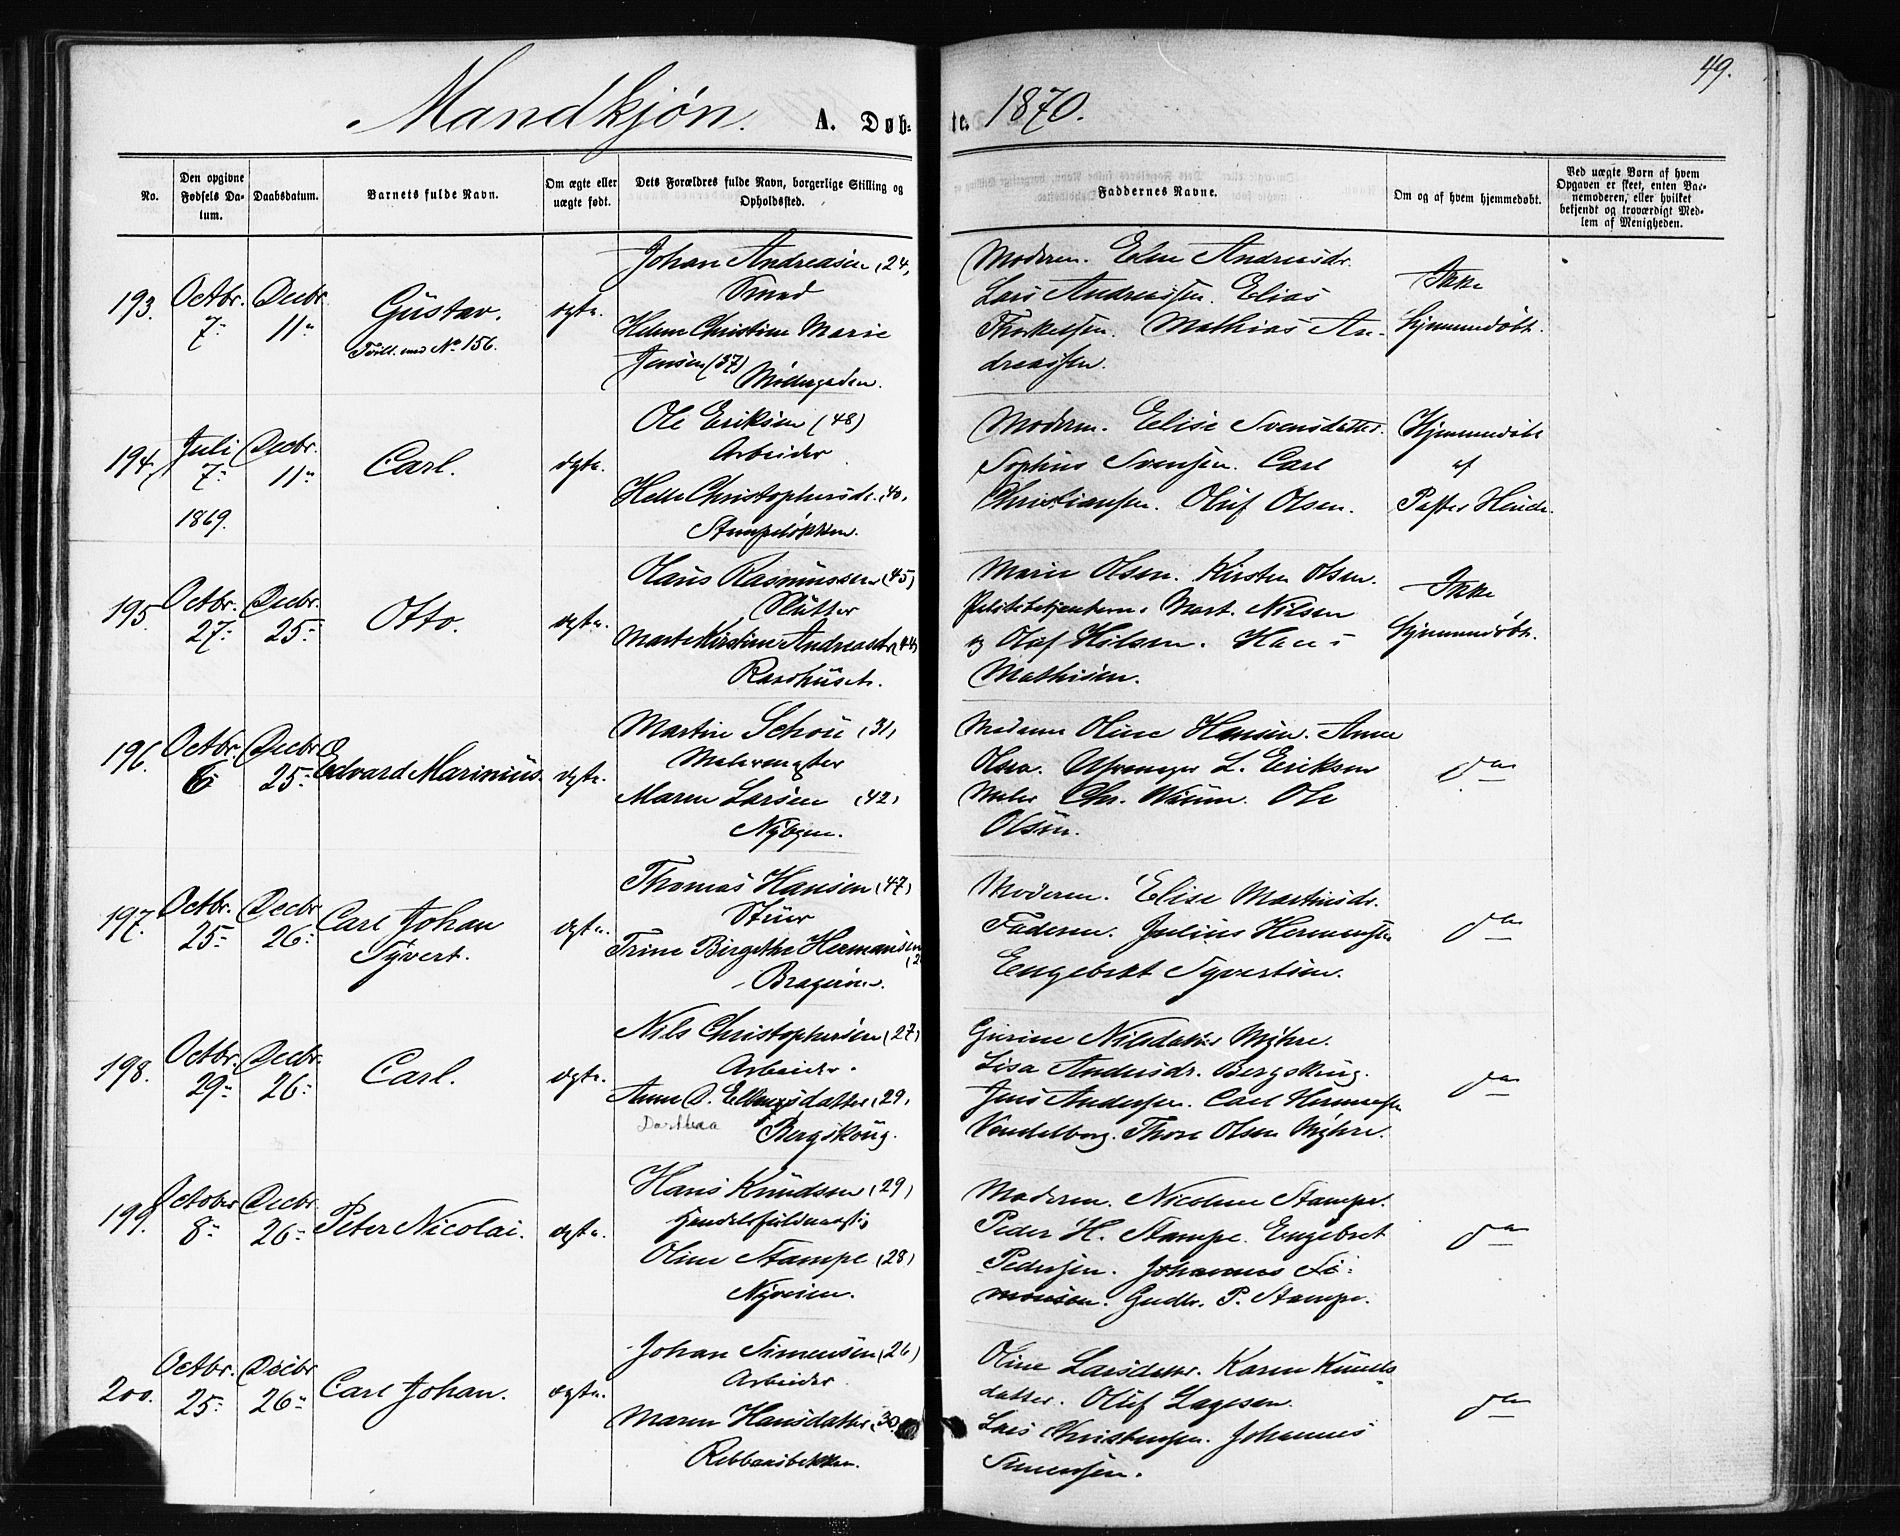 49.
Mandkjøn. A. Døb- te. 1870.
No. | Den opgivne Fødsels Da-tum. | Daabsdatum. | Barnets fulde Navn. | Om ægte eller uægte født. | Dets Forældres fulde Navn, borgerlige Stilling og Opholdssted. | Faddernes Navne. | Om og af hvem hjemmedøbt. | Ved uægte Børn af hvem Opgaven er skeet, enten Bar-nemoderen, eller hvilket bekjendt og troværdigt Med-lem af Menigheden.
193. Octbr. 7. Decbr. 11.
Gustav.
Tvill. med No 156.
ægte.
Johan Andreasen (24)
Smed
Helene Christine Marie
Jensen (37)
Moderen. Andreasdr.
Lars Andreassen. Elias
Thorkelsen. Mathias An-
dreassen.
Ikke
hjemmedøbt.
194. Juli 7. 1869. Decbr. 11.
Carl.
ægte.
Ole Eriksen (48)
Arbeider
Helle Christophersdr. (40)
Stampeløkken.
Moderen. Elise Svensdatter.
Sophus Svensen. Carl
Christiansen. Oluf Olsen.
Hjemmedøbt
af
195. Octbr. 27. Decbr. 25.
Otto.
ægte.
Hans Rasmussen (45)
Slutter
Marte Kirstine Andreasdr (44)
Raadhuset.
Marie Olsen. Kirsten Olsen.
Mart. Nilsen
og Olaf Hans
Mathisen.
Ikke
hjemmedøbt.
196. Octbr. 6. Decbr. 25.
Edvard Marinius.
ægte.
Martin Schou (31)
Malermester
Maren Larsen (42)
Nybyen.
Moderen Oline Hansen. Anne
Olsen. L. Eriksen
Maler Chr. Ole
Olsen.
do
197. Octbr. 25. Decbr. 26.
Carl Johan
Syvert.
ægte.
Thomas Hansen (47)
Trine Birgithe Hermansen
Bragerøen.
Moderen. Elise Martinsdr.
Faderen. Julius Hermansen
Engebret Syvertsen.
do
198. Octbr. 29. Decbr. 26.
Carl.
ægte.
Nils Christophersen (27)
Arbeider.
Anne D. Ellingsdatter (29)
Dorthea
Bergskoug.
Gurine Nilsdatter Myhre.
Lisa Andersdr. Bergskoug.
Jens Andersen. Carl Hermansen
Vendelborg. Thore Olsen Myhre.
do
199. October 8. Decbr. 26.
Peter Nicolai.
ægte.
Hans Knudsen (29)
Handelsfuldmægtig
Oline Stampe (28)
Nyveien.
Moderen. Nicoline Stampe.
Peder H. Stampe. Engebret
Pedersen. Johannes Si-
monsen. Gudbr. P. Stampe.
do
200. Octbr. 25. Decbr. 26.
Carl Johan.
ægte.
Johan Simensen (26)
Arbeider.
Maren Hansdatter (30)
Oline Larsdatter. Karen Knuds-
datter. Oluf Lagesen.
Lars Christensen. Johannes
Simensen.
do